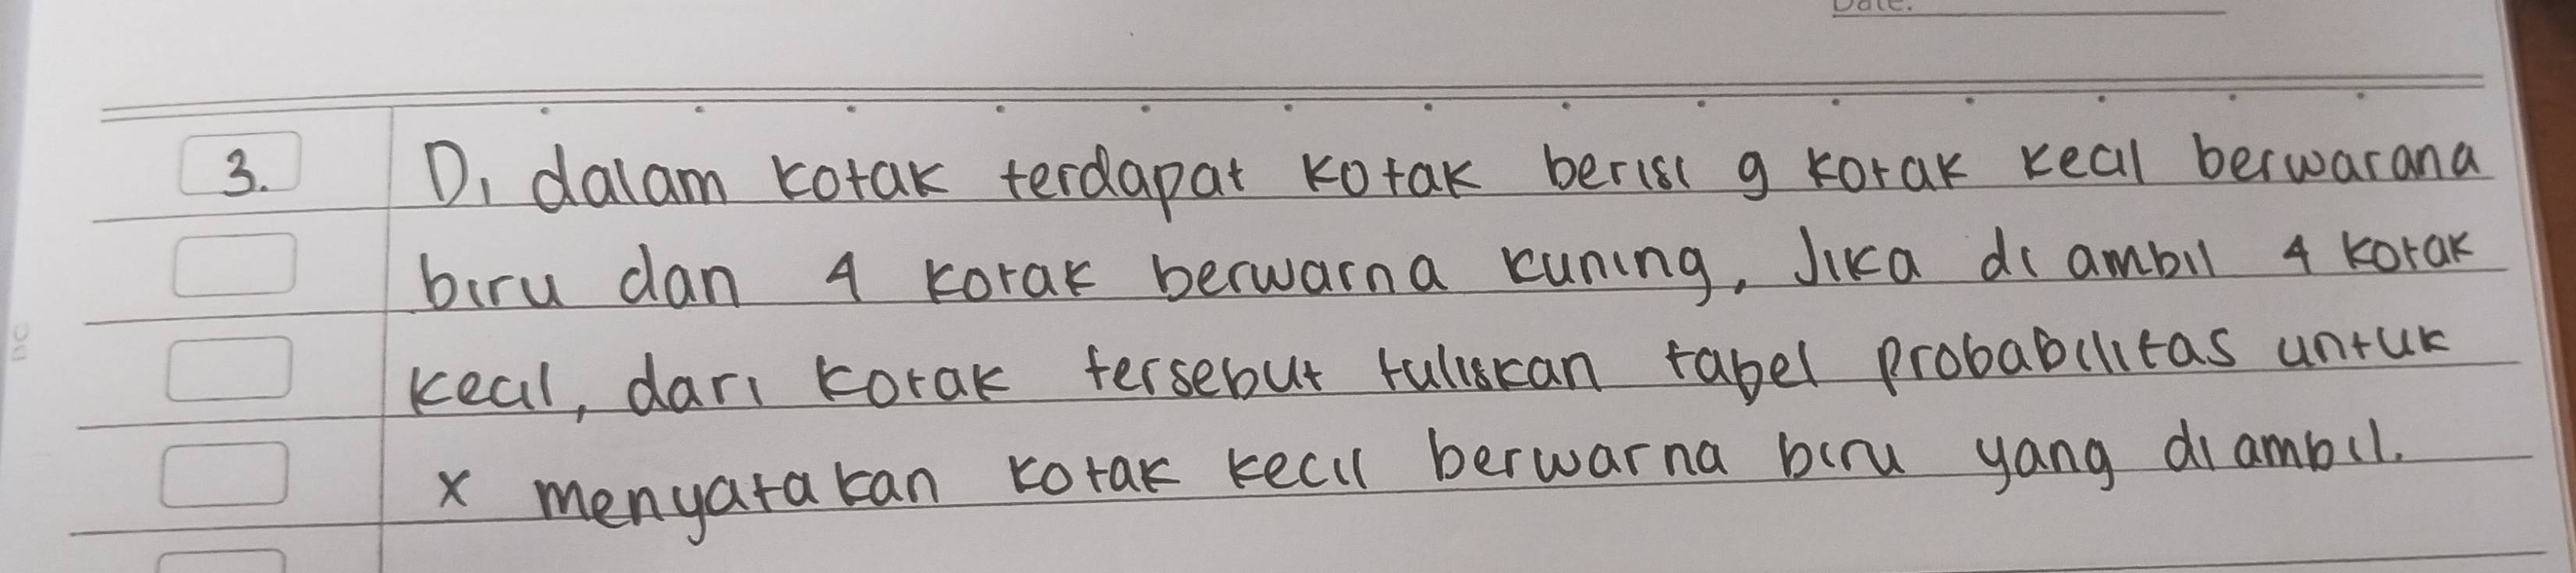 Date.
3. Di dalam kotak terdapat kotak berisi 9 kotak kecil berwarana
biru dan 4 kotak berwarna kuning. Jika di ambil 4 kotak
kecil, dari kotak tersebut tuliskan tabel probabilitas untuk
x menyatakan kotak kecil berwarna biru yang di ambil.